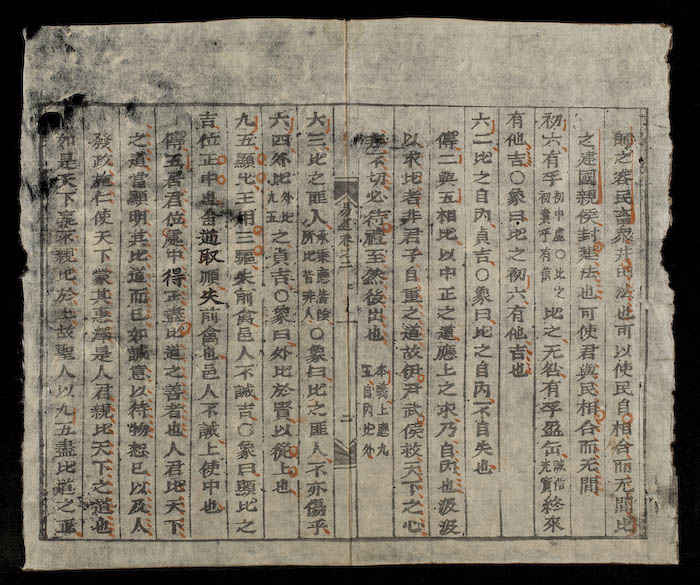 師之容民畜衆井田法也可以使民自相合而无間比
之建國親侯封建法也可使君與民相合而无間
初六有孚 初中虛 初貴乎有信 〇比之 比之无咎有孚盈缶 誠信充實 終來
有他吉〇象曰比之初六有他吉也
六二比之自內貞吉〇象曰比之自內不自失也
傳二與五相比以中正之道應上之求乃自內也汲汲
以求比者非君子自重之道故伊尹武侯救天下之心
非不切必待禮至然後出也 本義上應九五自內比外
易經卷之二
二
六三比之匪人 承乘應皆陰所比皆非人 〇象曰比之匪人不亦傷乎
六四外比 外比九五 之貞吉〇象曰外比於賢以從上也
九五顯比王用三驅失前禽邑人不誡吉〇象曰顯比之
吉位正中也舍逆取順失前禽也邑人不誡上使中也
傳五居君位處中得正盡比道之善者也人君比天下
之道當顯明其比道而已如誠意以待物恕己以及人
發政施仁使天下蒙其惠澤是人君親比天下之道也
如是天下孰不親比於上故聖人以九五盡比道之正